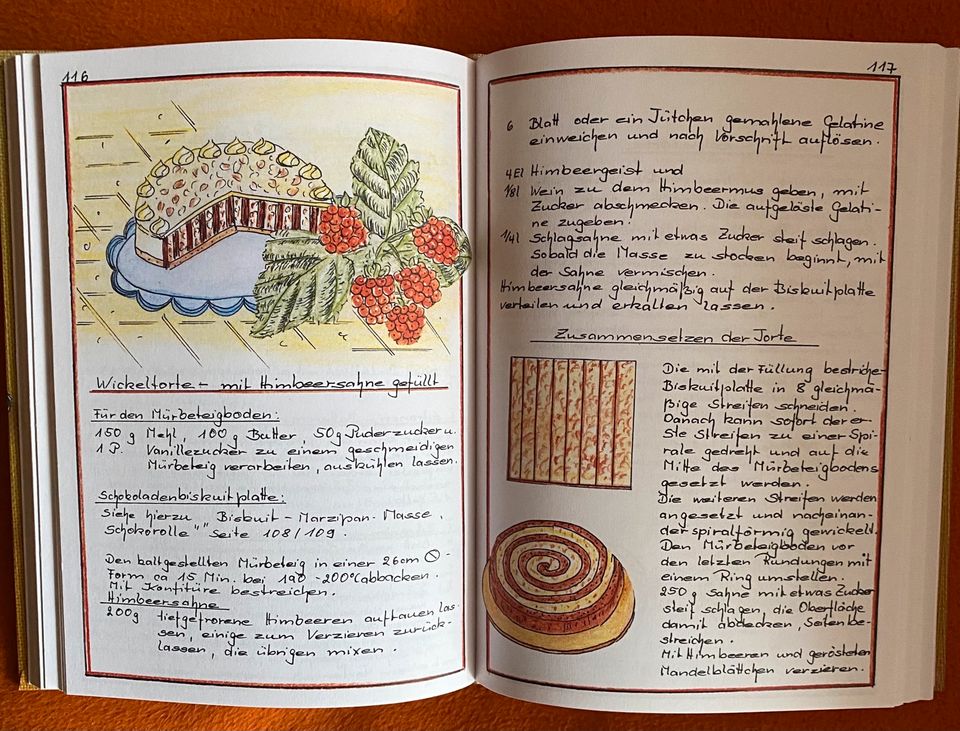 116
Wickeltorte - mit Himbeersahne gefüllt
Für den Mürbeteigboden:
150 g Mehl, 100 g Butter, 50 g Puderzucker u.
1 P. Vanillezucker zu einem geschmeidigen
Mürbeteig verarbeiten, auskühlen lassen.
Schokoladenbiskuitplatte:
Siehe hierzu Biskuit-Marzipan-Masse.
Schokorolle "" Seite 108/109.
Den kaltgestellten Mürbeteig in einer 26cm ∅-
Form ca 15 Min. bei 190-200°C abbacken.
Mit Konfitüre bestreichen.
Himbeersahne
200g tiefgefrorene Himbeeren auftauen las-
sen, einige zum Verzieren zurück-
lassen, die übrigen mixen.
117
6 Blatt oder ein Tütchen gemahlene Gelatine
einweichen und nach Vorschrift auflösen.
4 El Himbeergeist und
1/8l Wein zu dem Himbeermus geben, mit
Zucker abschmecken. Die aufgelöste Gelati-
ne zugeben.
1/4l Schlagsahne mit etwas Zucker steif schlagen.
Sobald die Masse zu stocken beginnt, mit
der Sahne vermischen.
Himbeersahne gleichmäßig auf der Biskuitplatte
verteilen und erkalten lassen.
Zusammensetzen der Torte
Die mit der Füllung bedröhe-
Biskuitplatte in 8 gleichmä-
ßige Streifen schneiden.
Danach kann sofort der er-
ste Streifen zu einer Spi-
rale gedreht und auf die
Mitte des Mürbeteigbodens
gesetzt werden.
Die weiteren Streifen werden
angesetzt und nacheinan-
der spiralförmig gewickelt.
Den Mürbeteigboden vor
den letzten Rundungen mit
einem Ring umstellen.
250 g Sahne mit etwas Zucker
steif schlagen, die Oberfläche
damit abdecken, Seiten be-
streichen.
Mit Himbeeren und gerösteten
Mandelblättchen verzieren.